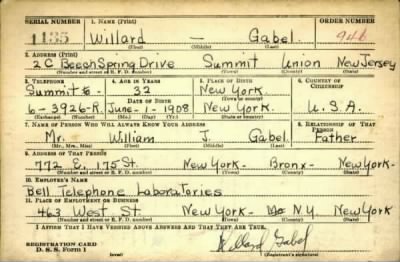 SERIAL NUMBER 1. NAME (Print) ORDER NUMBER
1155 Willard — Gabel 946
(First) (Middle) (Last)
2. ADDRESS (Print)
2C Beech Spring Drive Summit Union New Jersey
(Number and street or R. F. D. number) (Town) (County) (State)
3. TELEPHONE 4. AGE IN YEARS 5. PLACE OF BIRTH 6. COUNTRY OF CITIZENSHIP
Summit 6 - 32 New York.
DATE OF BIRTH (Town or county)
6-3926-R. June-1-1908 New York. U.S.A.
(Exchange) (Number) (Mo.) (Day) (Yr.) (State or country)
7. NAME OF PERSON WHO WILL ALWAYS KNOW YOUR ADDRESS 8. RELATIONSHIP OF THAT PERSON
Mr. William J. Gabel Father
(Mr., Mrs., Miss) (First) (Middle) (Last)
9. ADDRESS OF THAT PERSON
772 E. 175 St. New York- Bronx- New York-
(Number and street or R. F. D. number) (Town) (County) (State)
10. EMPLOYER'S NAME
Bell Telephone Laboratories
11. PLACE OF EMPLOYMENT OR BUSINESS
463 West St. New York- N.Y. New York
(Number and street or R. F. D. number) (Town) (County) (State)
I AFFIRM THAT I HAVE VERIFIED ABOVE ANSWERS AND THAT THEY ARE TRUE.
REGISTRATION CARD Willard Gabel
D. S. S. Form 1 (over) (Registrant's signature)